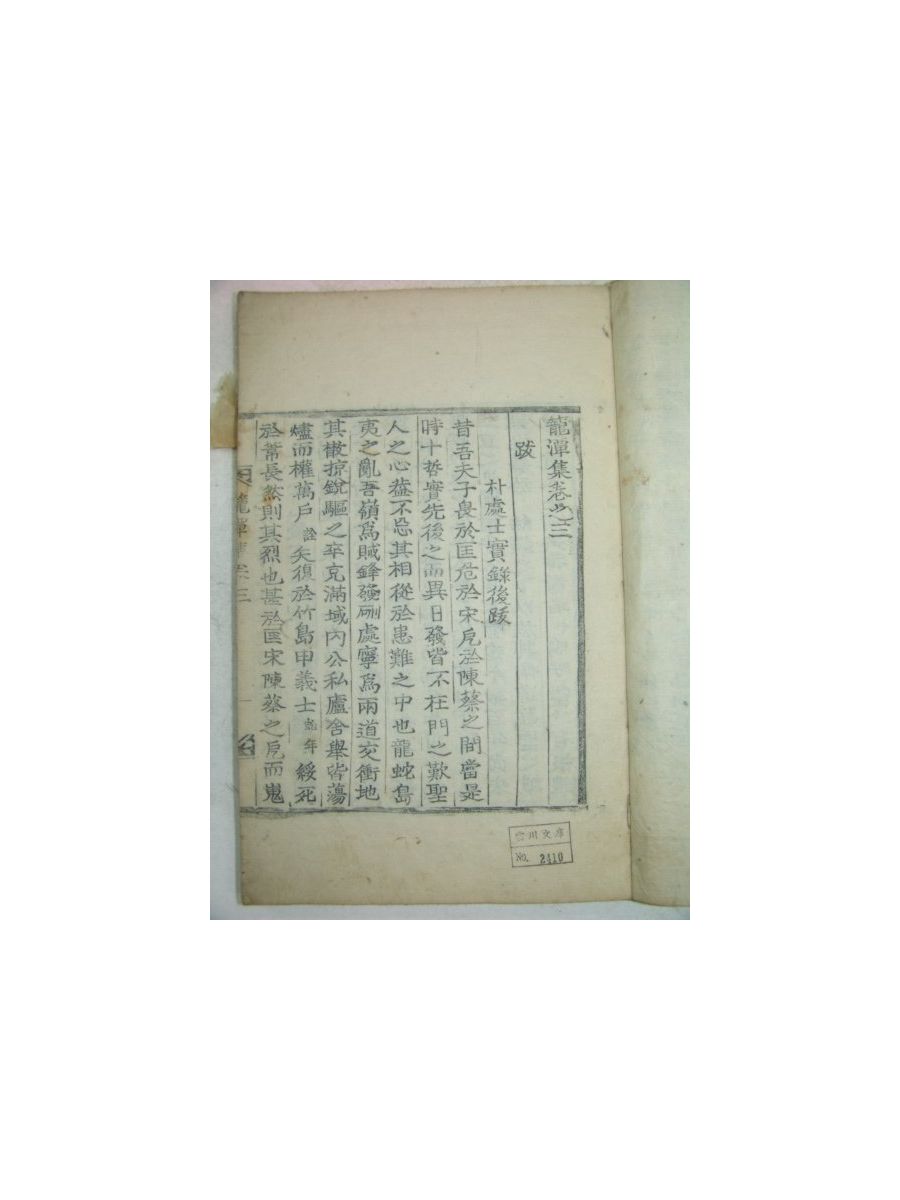 籠潭集卷之三
跋
朴處士實錄後跋
昔吾夫子畏於匡危於宋戹於陳蔡之間當是
時十哲實先後之而異日發皆不在門之歎聖
人之心蓋不忘其相從於患難之中也龍蛇島
夷之亂吾嶺爲賊鋒發硎處寧爲兩道交衝地
其檄掠銳驅之卒充滿域內公私廬舍擧皆蕩
燼而權萬戶詮矢復於竹島申義士 年 綏死
於 長然則其烈也甚於匡宋陳蔡之戹而嵬
籠潭集卷三
一
文庫
No. 2410